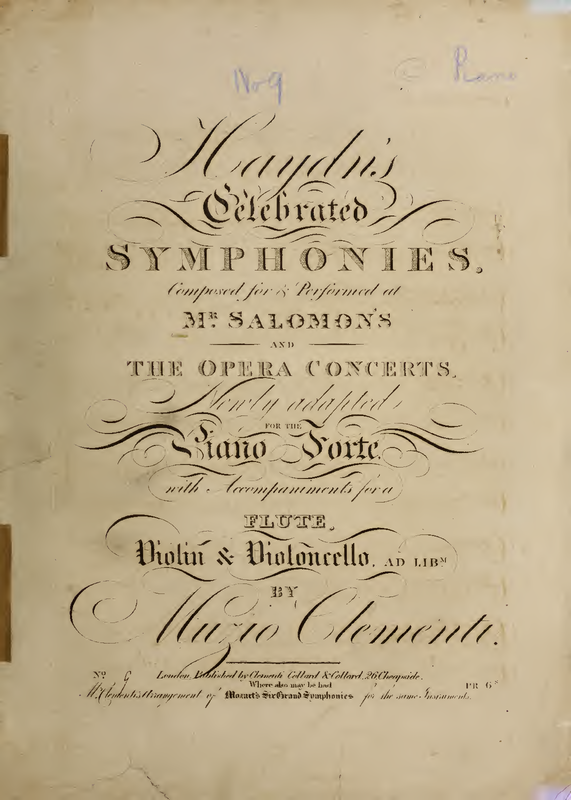 No 9
Piano
Haydn's
Celebrated
SYMPHONIES,
Composed for & Performed at
MR. SALOMON'S
AND
THE OPERA CONCERTS,
Newly adapted
FOR THE
Piano Forte,
with Accompaniments for a
FLUTE,
Violin & Violoncello, AD LIBM
BY
Muzio Clementi.
London, Published by Clementi Collard & Collard, 26, Cheapside.
No. 9
Where also may be had
PR 6s
Mr. Clementi's Arrangement of Mozart's Six Grand Symphonies for the same Instruments.